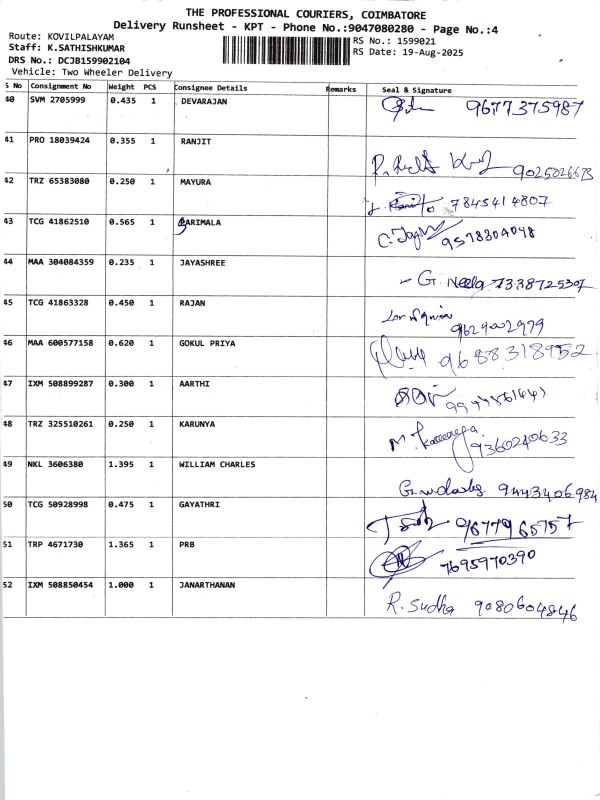 THE PROFESSIONAL COURIERS, COIMBATORE
Delivery Runsheet - KPT - Phone No.:9047080280 - Page No.:4
Route: KOVILPALAYAM
RS No.: 1599021
Staff: K.SATHISHKUMAR
RS Date: 19-Aug-2025
DRS No.: DCJB159902104
Vehicle: Two Wheeler Delivery
S No Consignment No Weight PCS Consignee Details Remarks Seal & Signature
40 SVM 2705999 0.435 1 DEVARAJAN 9677375987
41 PRO 18039424 0.355 1 RANJIT 9025026673
42 TRZ 65383080 0.250 1 MAYURA 7845414807
43 TCG 41862510 0.565 1 PARIMALA 9578304048
44 MAA 304084359 0.235 1 JAYASHREE G. Neela 7338725307
45 TCG 41863328 0.450 1 RAJAN 9629002979
46 MAA 600577158 0.620 1 GOKUL PRIYA 9688318952
47 IXM 508899287 0.300 1 AARTHI
48 TRZ 325510261 0.250 1 KARUNYA 9360240633
49 NKL 3606380 1.395 1 WILLIAM CHARLES 9443406984
50 TCG 50928998 0.475 1 GAYATHRI 9677965757
51 TRP 4671730 1.365 1 PRB 7695970390
52 IXM 508850454 1.000 1 JANARTHANAN R. Sudha 9080604846